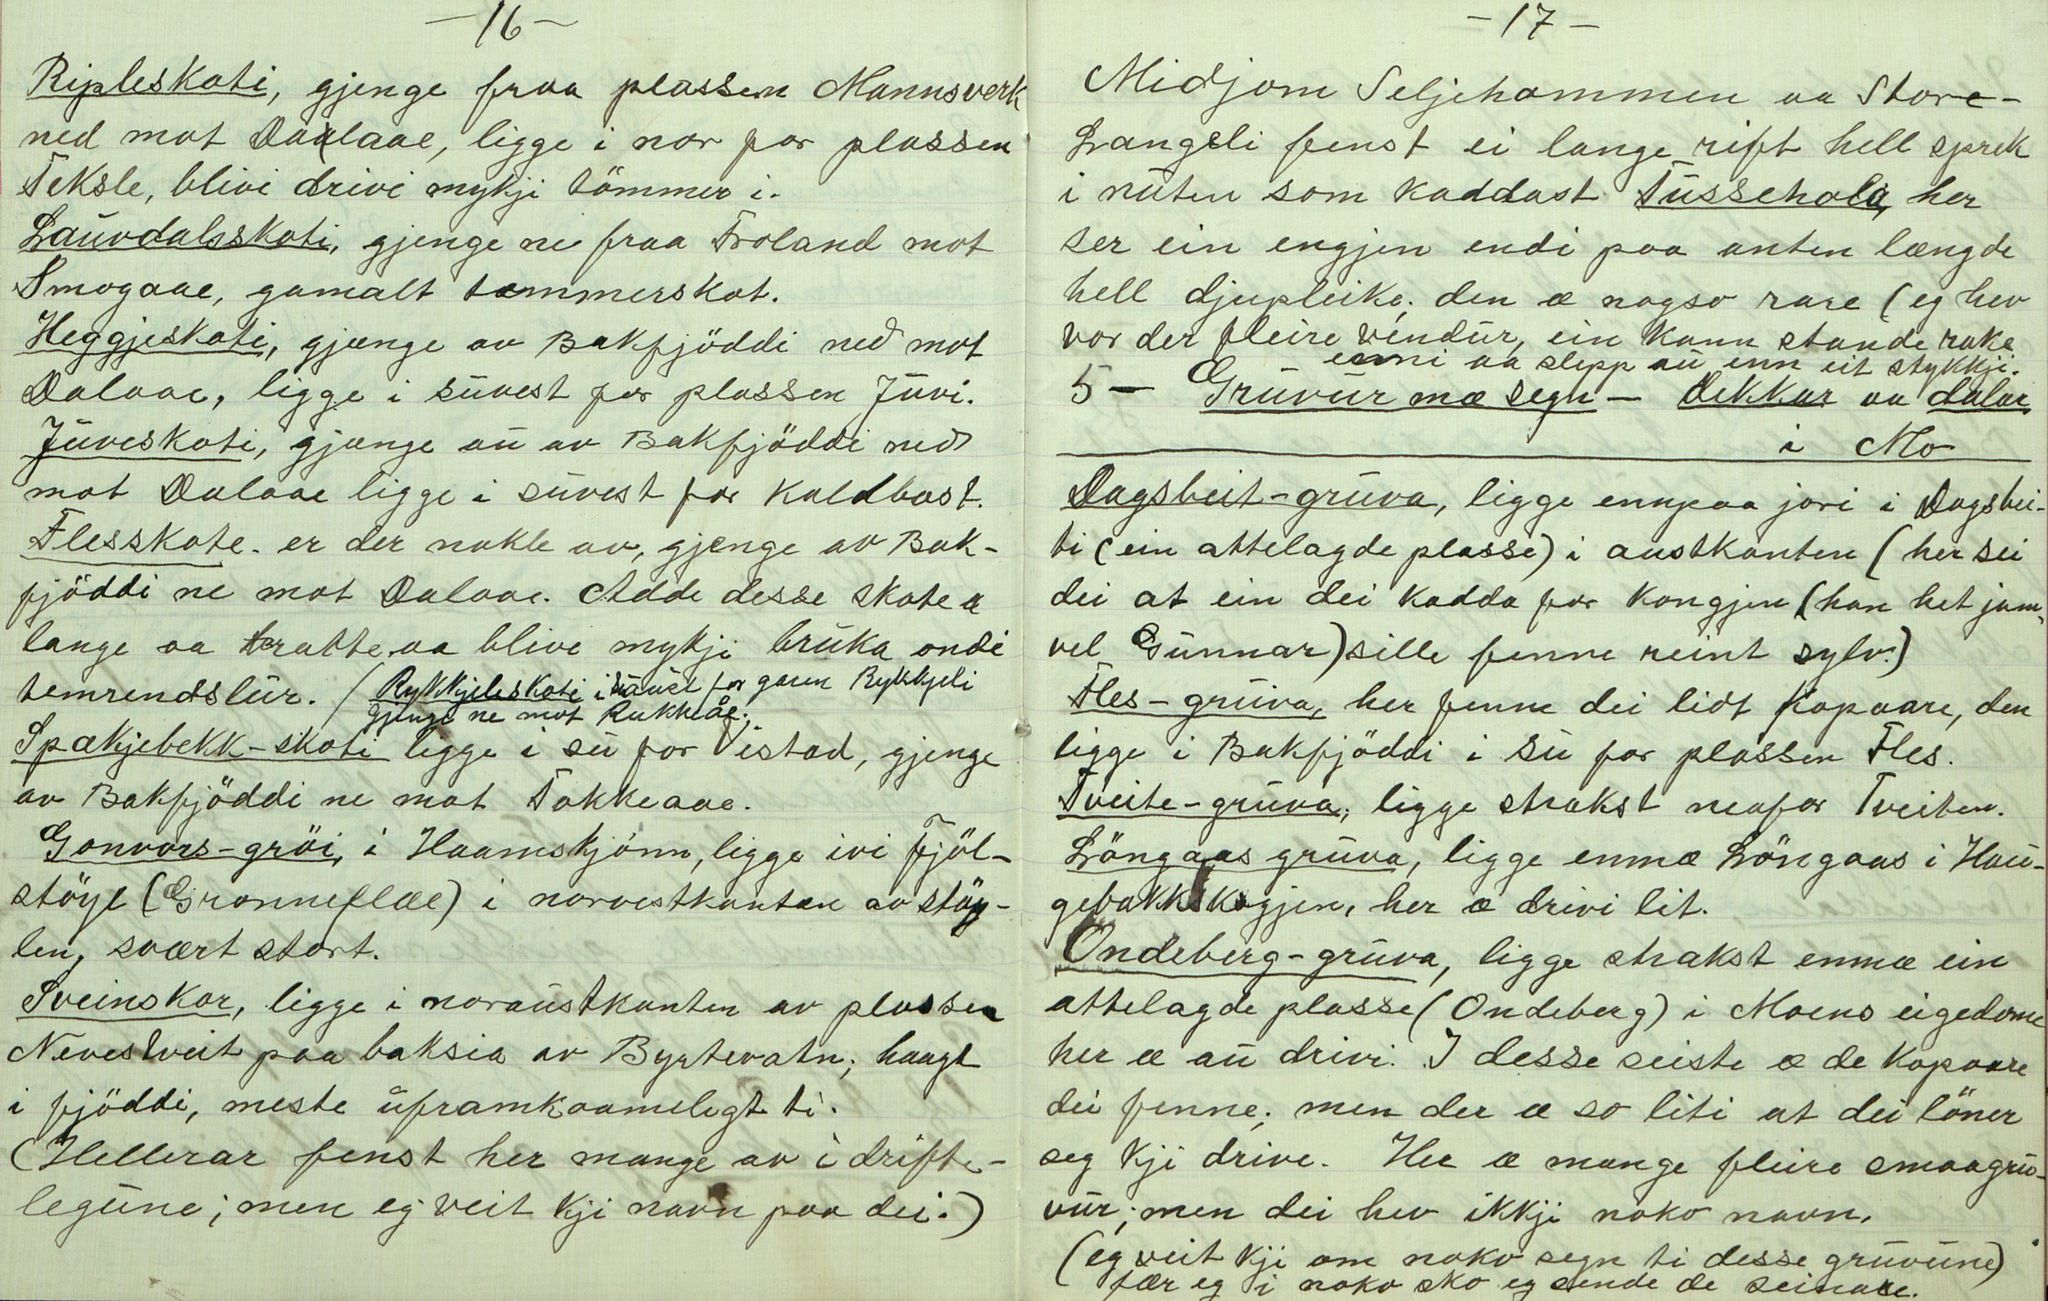 -16-
Ripleskoti, gjenge fraa plassen Mannsverk
ned mot Daalaae, ligge i nor for plassen
Teksle, blivi drivi mykji tömmer i.
Lauvdalsskoti, gjenge ne fraa Froland mot
Smogaae, gamalt tømmerskot.
Heggjeskoti, gjænge av Bakfjöddi ned mot
Dalaae, ligge i suvest for plassen Juvi.
Juveskoti, gjænge au av Bakfjöddi ned
mot Dalaae ligge i suvest for Kaldbast.
Flesskote er der nokle av, gjenge av Bak-
fjöddi ne mot Dalaae. Adde desse skote æ
lange aa bratte aa blive mykji bruka ondi
temrendslur. (Rykkjeleskoti i saust for garen Rykkjeli
gjenge ne mot Rukkeåe.)
Spækjebekk-skoti ligge i su for Vistad, gjenge
av Bakfjöddi ne mot Tokkeaae.
Gonvors-gröi, i Haamskjönn, ligge ivi Fjöl-
støyl (Gronneflæe) i norvestkanten av støy-
len, svært stort.
Sveinskor, ligge i noraustkanten av plassen
Nevestveit paa baksia av Byrtevatn; haagt
i fjöddi, meste uframkaamelegt ti.
(Hellerar fenst her mange av i drifte-
legune; men eg veit kji navn paa dei.)
-17-
Midjom Seljehommen aa Store-
Langeli fenst ei lange rift hell sprek
i nuten som kaddast Tussehola, her
ser ein engjen endi paa anten længde
hell djupleike; den æ nogso rare (eg hev
vor der fleire vendur, ein kann stande rake
enni aa slepp au enn eit stykkji.
5- Gruvur mæ segn - dekkar aa dalar
i Mo
Dagsbeit-gruva, ligge ennpaa jori i Dagsbei-
ti (ein attelagde plasse) i austkanten (her sei
dei at ein dei kadda for Kongjen (han het jam-
vel Gunnar) sille fenne reint sylv.)
Fles-gruva, her fenne dei lidt kopaare, den
ligge i Bakfjöddi i su for plassen Fles.
Tveite-gruva, ligge strakst neafor Tveiten.
Löngaas gruva, ligge enmæ Löngaas i Hau-
gebakkskogjen, her æ drivi lit.
Ondeberg-gruva, ligge strakst enmæ ein
attelagde plasse (Ondeberg) i Moens eigedome
her æ au drivi. I desse seiste æ de kopaare
dei fenne; men der æ so liti at dei löner
seg kji drive. Her æ mange fleire smaagru-
vur; men dei hev ikkji noko navn.
(eg veit kji om noko segn ti desse gruvune)
fær eg i noko sko eg sende de seinare.